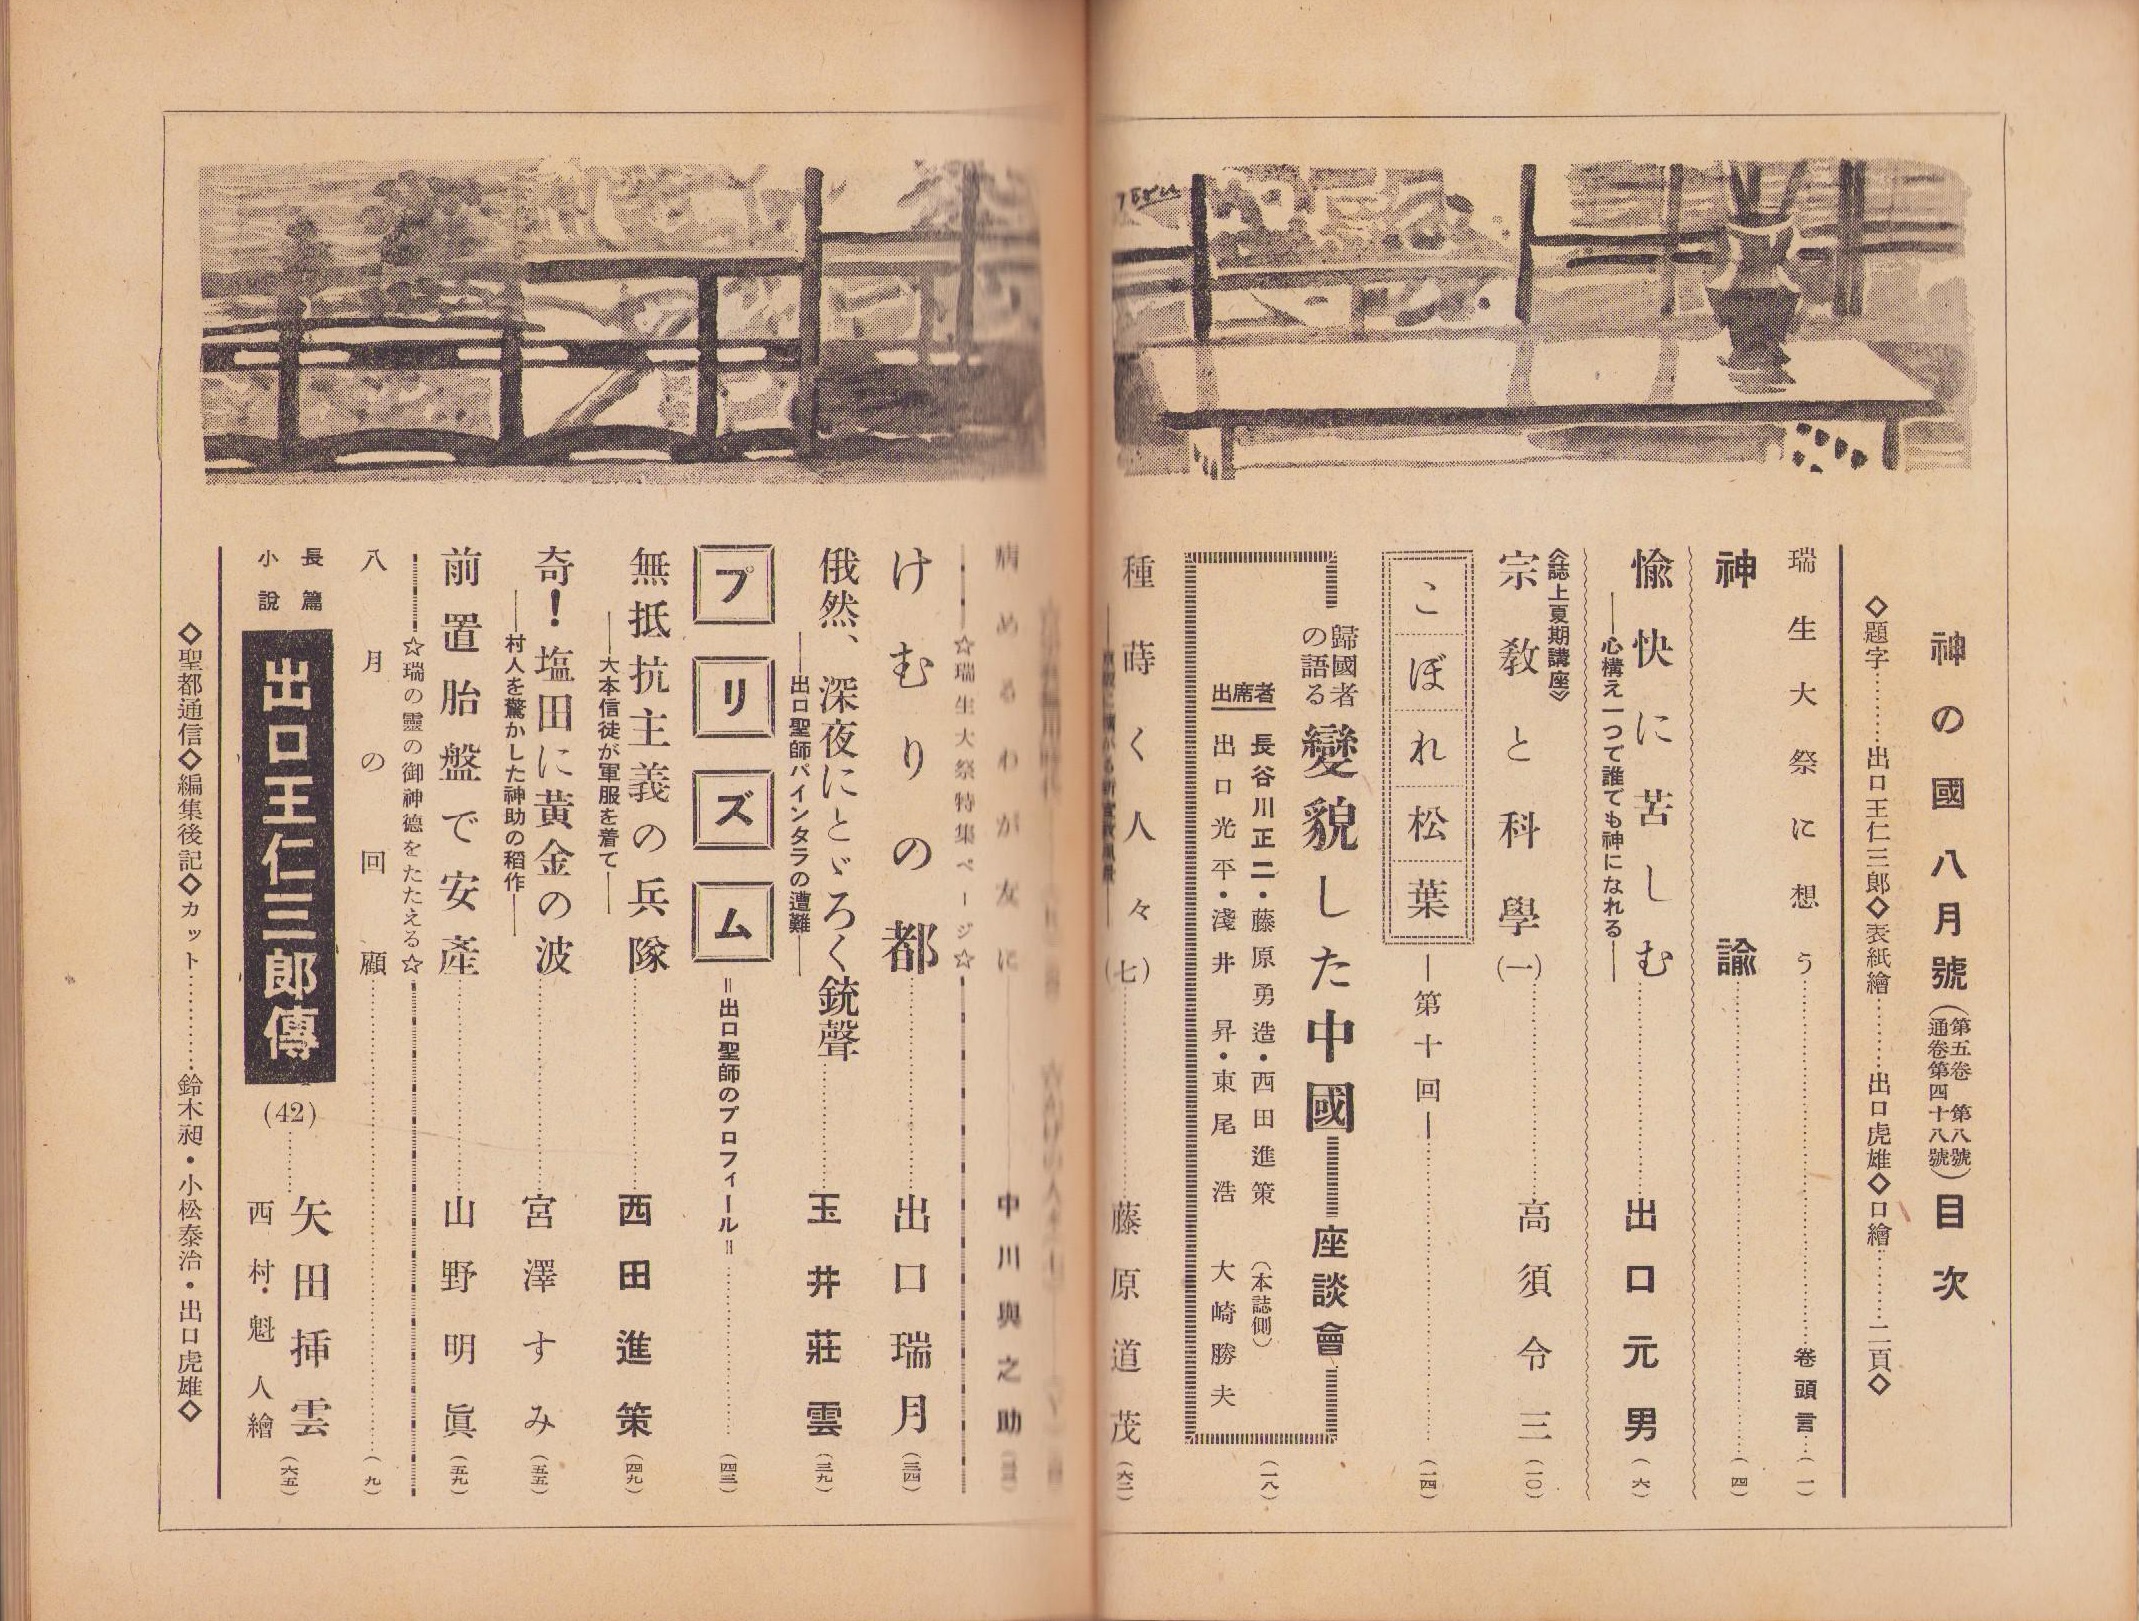 神の國 八月號 (第五卷 第八號 通卷第四十八號) 目次
◇題字………出口王仁三郎◇表紙繪………出口虎雄◇口繪………二頁◇
瑞生大祭に想う………卷頭言…(一)
神諭………(四)
愉快に苦しむ………出口元男(六)
――心構え一つで誰でも神になれる――
《誌上夏期講座》
宗敎と科學(一)………高須令三(一〇)
こぼれ松葉 ―第十回―………(一四)
歸國者の語る 變貌した中國 座談會(一八)
出席者 長谷川正二・藤原勇造・西田進策 (本誌側)
出口光平・淺井昇・東尾浩 大崎勝夫
種蒔く人々(七)………藤原道茂(六二)
病めるわが友に………中川與之助
☆瑞生大祭特集ページ☆
けむりの都………出口瑞月(三四)
俄然、深夜にとゞろく銃聲………玉井莊雲(三九)
――出口聖師パインタラの遭難――
プリズム =出口聖師のプロフィール=………(四三)
無抵抗主義の兵隊………西田進策(四九)
――大本信徒が軍服を着て――
奇!塩田に黃金の波………宮澤すみ(五五)
――村人を驚かした神助の稻作――
前置胎盤で安產………山野明眞(五九)
☆瑞の靈の御神德をたたえる☆
八月の回顧………(九)
長篇小說 出口王仁三郎傳 (42)………矢田挿雲(六五)
西村・魁人繪
◇聖都通信◇編集後記◇カット………鈴木昶・小松泰治・出口虎雄◇
Teru